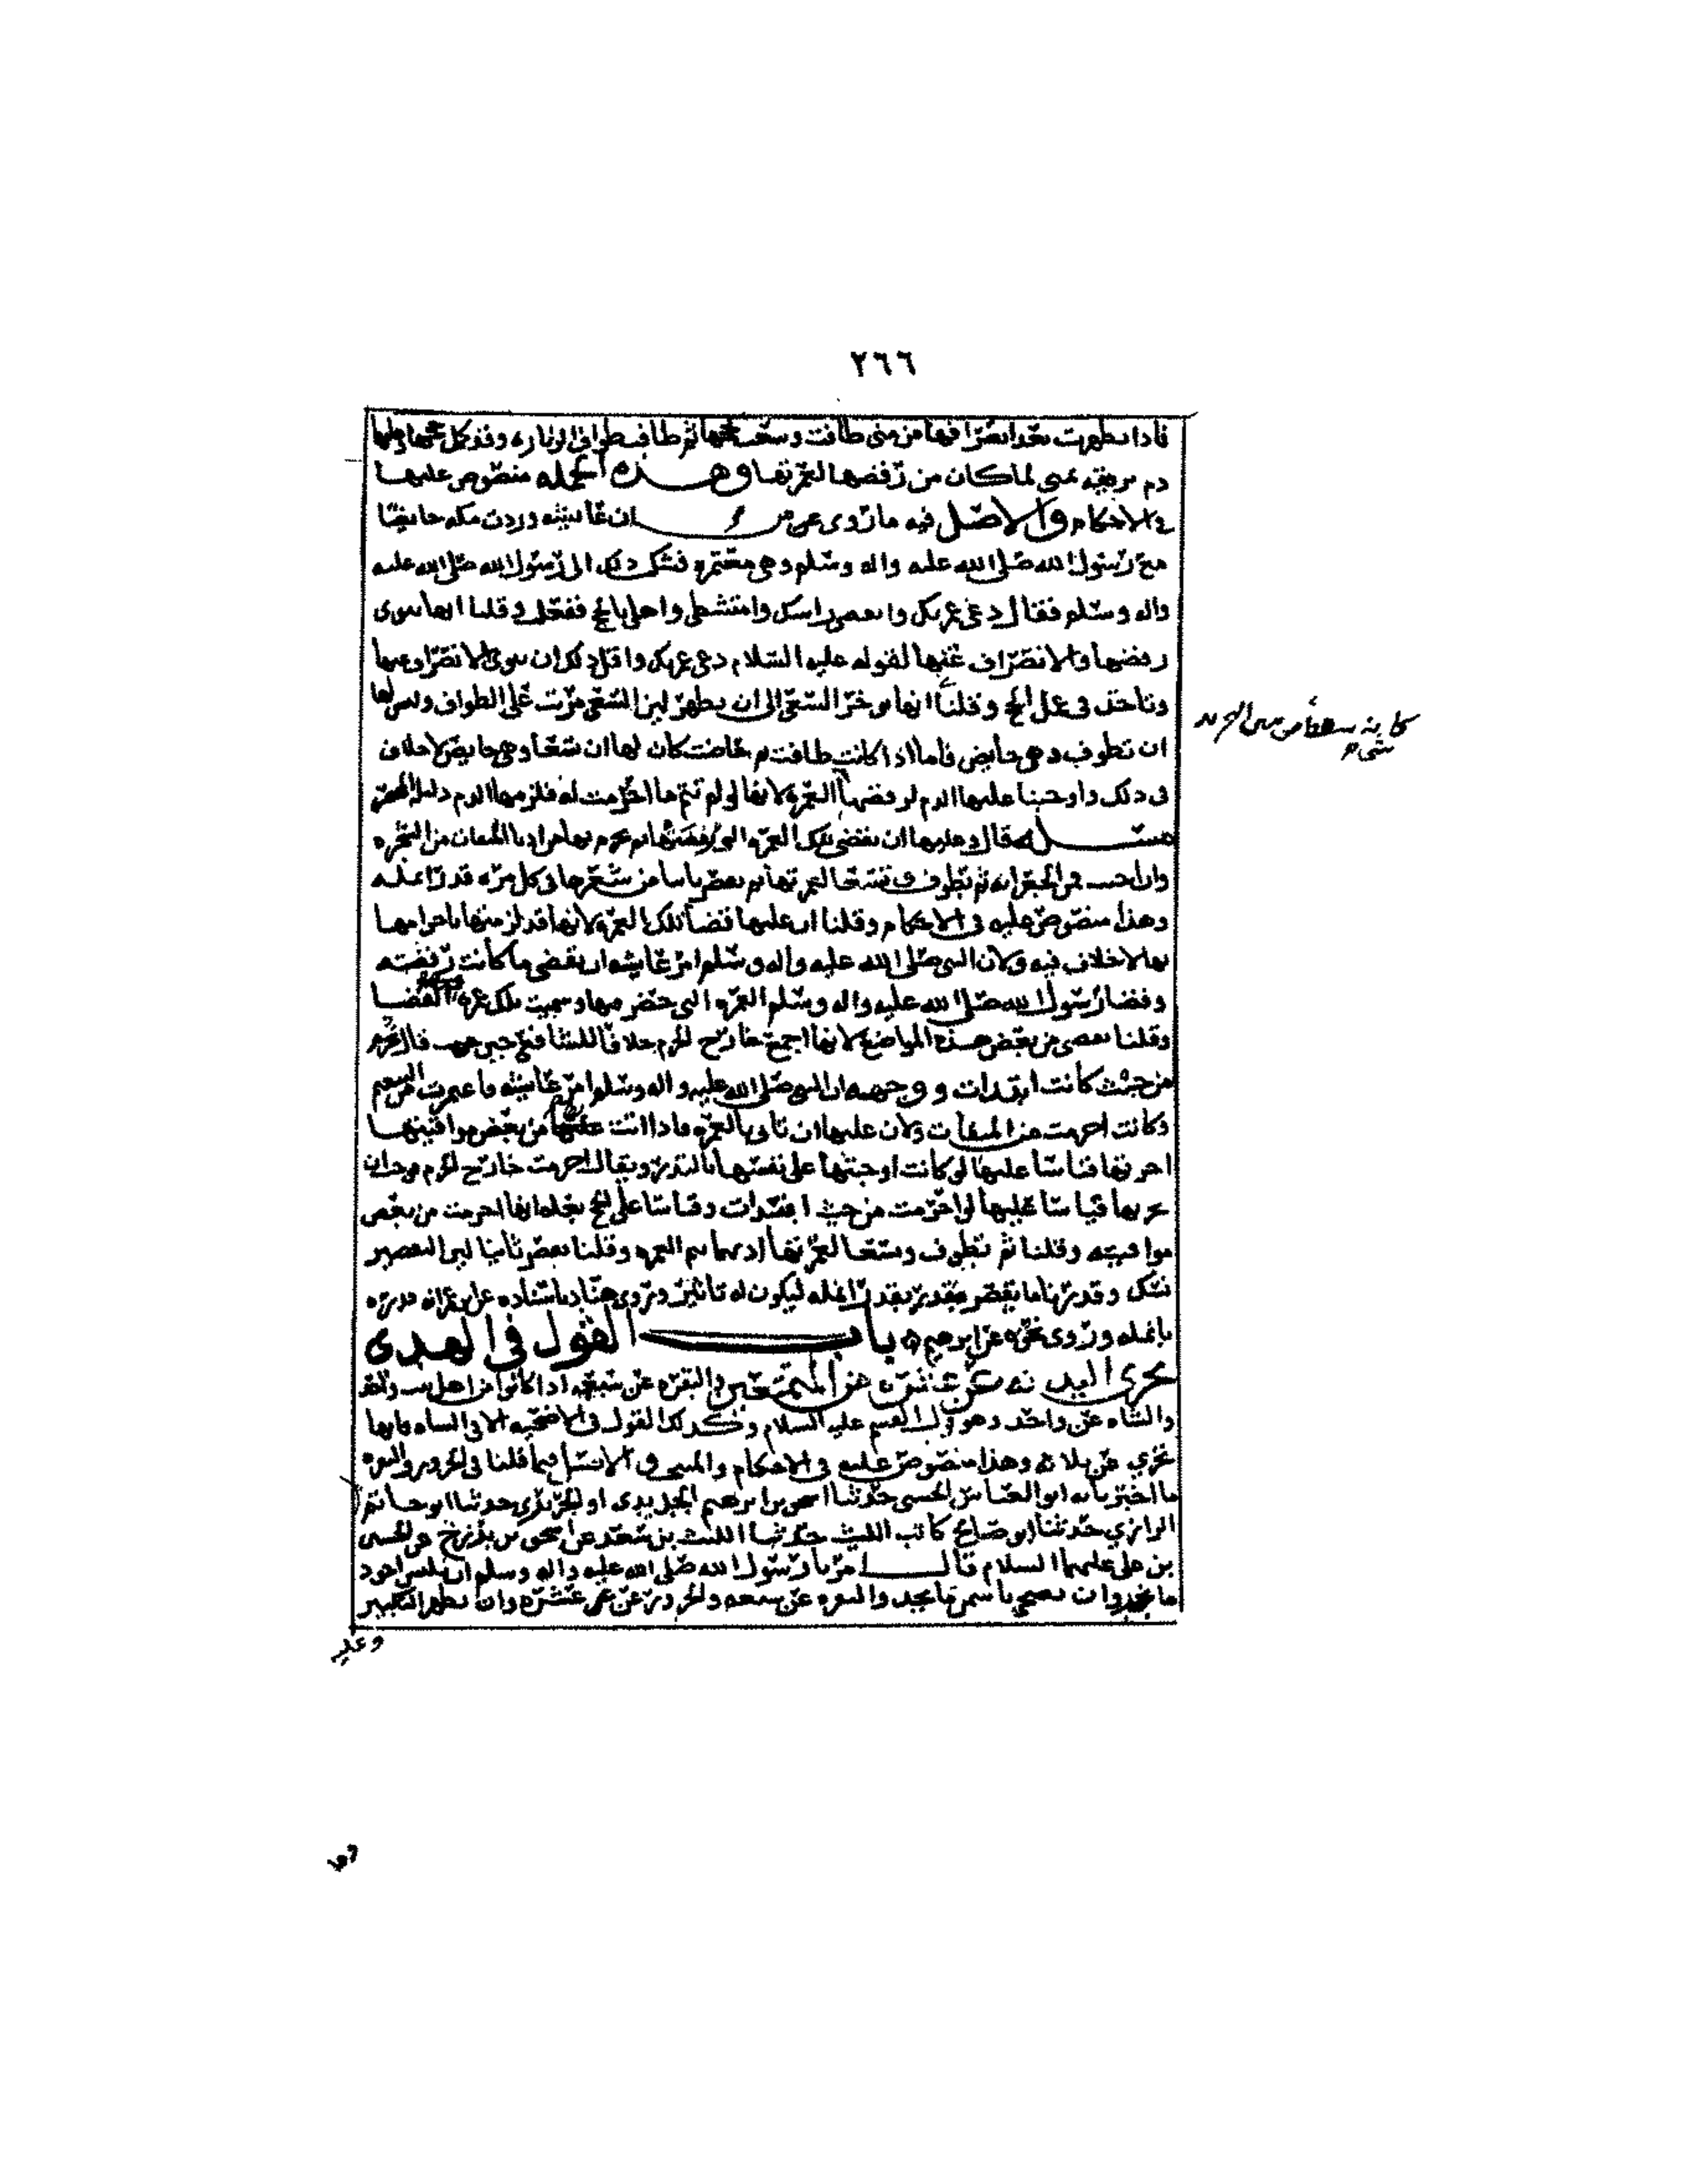 ٢٦٦
فاذا تطهرت بعد انصرافها من منى طافت وسعت لحجها ثم طافت طواف الزياره وقد كمل حجها وعليها
دم تريقه بمنى لما كان من رفضها لعمرتها وهذه الجمله منصوص عليها
في الاحكام والاصل فيه ما روى عن ان عائشه وردت مكه حائضا
مع رسول الله صلى الله عليه واله وسلم وهي معتمره فشكت ذلك الى رسول الله صلى الله عليه
واله وسلم فقال دعي عمرتك وانفضي راسك وامتشطي واهلي بالحج ففعلت وقلنا انها تنوي
رفضها والانصراف عنها لقوله عليه السلام دعي عمرتك واقل ذلك ان تنوي الانصراف عنها
وتاخذ في عمل الحج وقلنا انها توخر السعي الى ان تطهر لان السعي مرتب على الطواف وليس لها
ان تطوف وهي حايض فاما اذا كانت طافت ثم حاضت كان لها ان تسعا وهي حايض لا خلاف
في ذلك واوجبنا عليها الدم لرفضها العمره لانها لو لم تتم ما احرمت له فلزمها الدم دليله المحصر
مسئله قال وعليها ان تقضي تلك العمره التي رفضتها ثم تحرم بها من ادنا المواقيت من الشجره
وان احبت فمن الجعرانه ثم تطوف وتسعا لعمرتها ثم تقصر ثانيا من شعرها في كل مره قدر انمله
وهذا منصوص عليه في الاحكام وقلنا ان عليها قضا تلك العمره لانها قد لزمتها باحرامها
بها لا خلاف فيه ولان النبي صلى الله عليه واله وسلم امر عائشه ان تقضي ما كانت رفضته
وقضا رسول الله صلى الله عليه واله وسلم العمره التي حضر منها وسميت تلك عمره القضا
وقلنا من بعض هذه المواضع لانها اجمع خارج الحرم خلافا للشافعي حين قال تحرم
من حيث كانت ابتدات ووجهه ان النبي صلى الله عليه واله وسلم امر عائشه فاعتمرت من التنعيم
وكانت احرمت من الميقات ولان عليها ان تاتي بالعمره فاذا اتت عليها من بعض مواقيتها
اجزتها قياسا عليها لو كانت اوجبتها على نفسها بالنذر ويقال احرمت خارج الحرم فوجب ان
تجزيها قياسا عليها لو احرمت من حيث ابتدات وقياسا على الحج بعله انها احرمت من بعض
مواقيته وقلنا ثم تطوف وتسعا لعمرتها اذ بهما تتم العمره وقلنا تقصر ثانيا لان التقصير
نسك وقدرناها بقصر مقدر بقدر انمله ليكون له تاثير وروى هناد باسناده عن ابن عمر انه قدره
بانمله وروى نحوه عن ابرهيم باب القول في الهدي
تجزي البدنه عن عشره من المتمتعين والبقره عن سبعه اذا كانوا من اهل بيت واحد
والشاه عن واحد وهو قول القسم عليه السلام وكذلك القول في الاضحيه الا في الشاه فانها
تجزي عن ثلاثه وهذا منصوص عليه في الاحكام والمنتخب والاصل فيما قلنا في الجزور والبقره
ما اخبرنا به ابو العباس الحسني حدثنا اسحق بن ابرهيم الجديدي او الجزيزي حدثنا ابو حاتم
الرازي حدثنا ابو صالح كاتب الليث حدثنا الليث بن سعد عن اسحق بن بزرج عن الحسن
بن علي عليهما السلام قال امرنا رسول الله صلى الله عليه واله وسلم ان نلبس اجود
ما نجد وان نضحي باسمن ما نجد والبقره عن سبعه والجزور عن عشره وان نظهر التكبير
وعلى